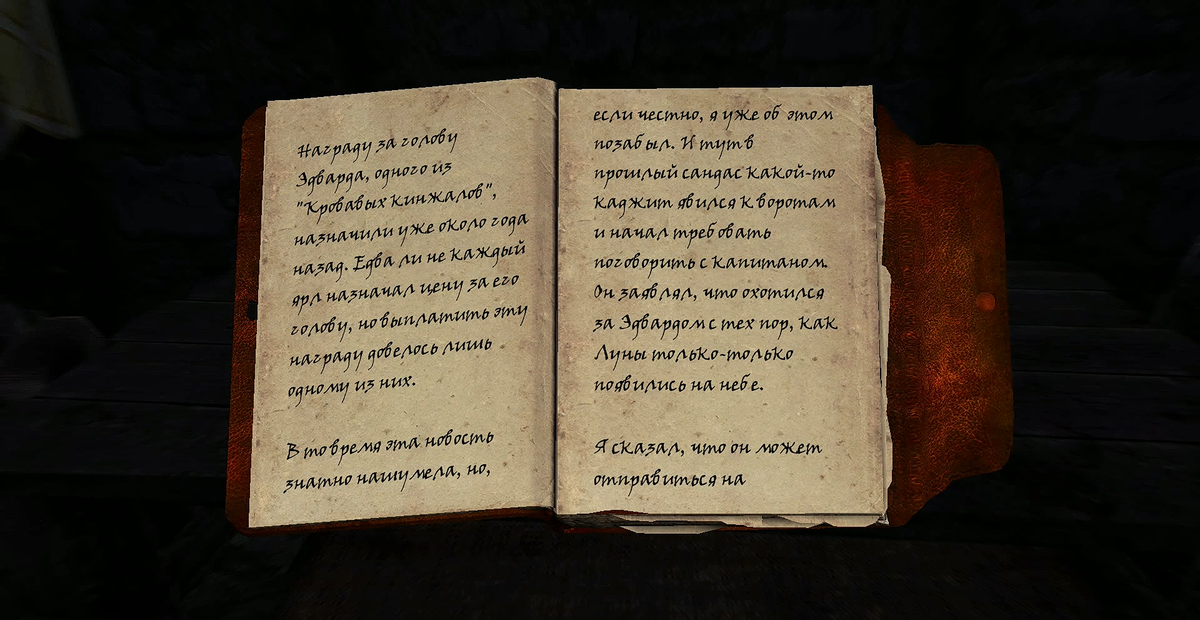 Награду за голову
Эдварда, одного из
"Кровавых кинжалов",
назначили уже около года
назад. Едва ли не каждый
ярл назначал цену за его
голову, но выплатить эту
награду довелось лишь
одному из них.
В то время эта новость
знатно нашумела, но,
если честно, я уже об этом
позабыл. И тут в
прошлый сандас какой-то
каджит явился к воротам
и начал требовать
поговорить с капитаном.
Он заявлял, что охотился
за Эдвардом с тех пор, как
Луны только-только
появились на небе.
Я сказал, что он может
отправиться на